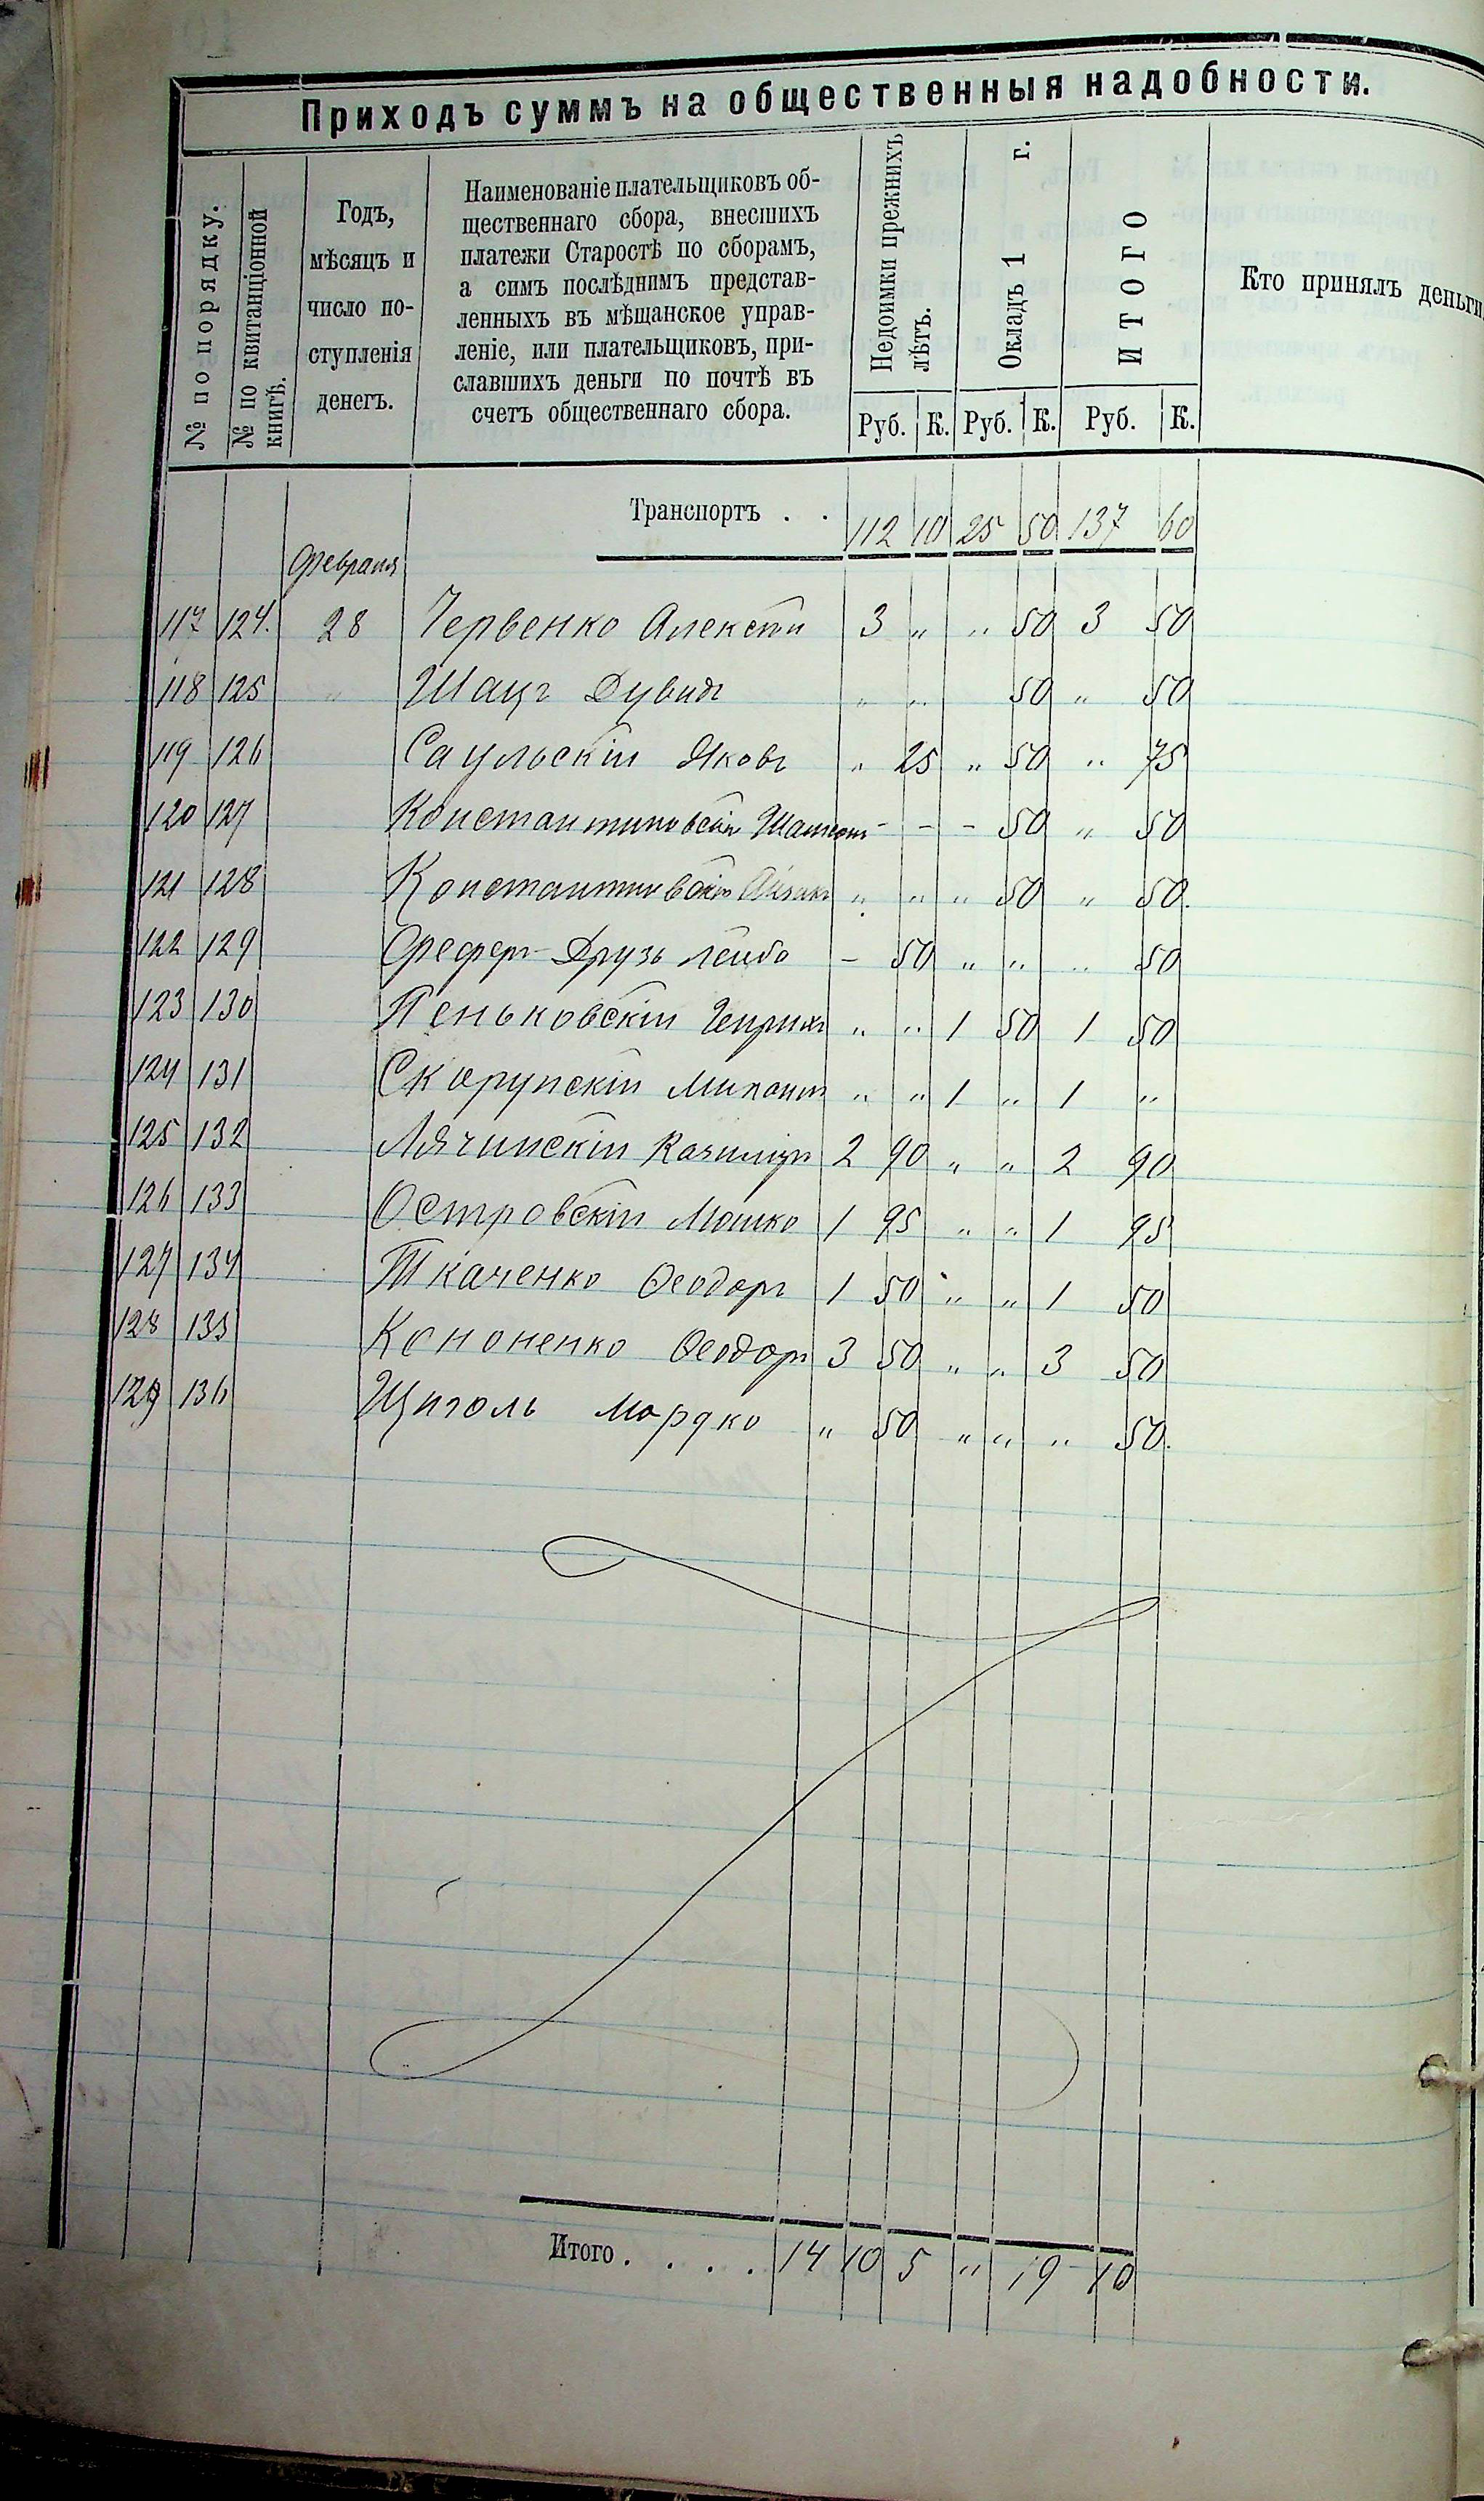 Приходъ суммъ на общественныя надобности.
№ по порядку.
№ по квитанціонной
книгѣ.
Годъ,
мѣсяцъ и
число по-
ступленія
денегъ.
Наименованіе плательщиковъ об-
щественнаго сбора, внесшихъ
платежи Старостѣ по сборамъ,
а симъ послѣднимъ представ-
ленныхъ въ мѣщанское управ-
леніе, или плательщиковъ, при-
славшихъ деньги по почтѣ въ
счетъ общественнаго сбора.
Недоимки прежнихъ
лѣтъ.
Окладъ 1 г.
ИТОГО
Кто принялъ деньги
Руб. К. Руб. К. Руб. К.
Транспортъ . . 112 10 25 50 137 60
Февраля
117 124. 28 Червенко Алексѣй 3 " " 50 3 50
118 125 " Шацъ Дувидъ " " 50 " 50
119 126 Саульскій Яковъ " 25 " 50 " 75
120 127 Константиновскій - - - 50 " 50
121 128 Константиновскій Айзикъ " " " 50 " 50.
122 129 Фефер-Друзь Лейба - 50 " " " 50
123 130 Пеньковскій Генрихъ " " 1 50 1 50
124 131 Скорупскій " " 1 " 1 "
125 132 Лячинскій Казиміръ 2 90 " " 2 90
126 133 Островскій Мошко 1 95 " " 1 95
127 134 Ткаченко Ѳеодоръ 1 50 " " 1 50
128 135 Кононенко Ѳеодоръ 3 50 " " 3 50
129 136 Щиголь Мордко " 50 " " " 50.
Итого. . . . 14 10 5 " 19 10